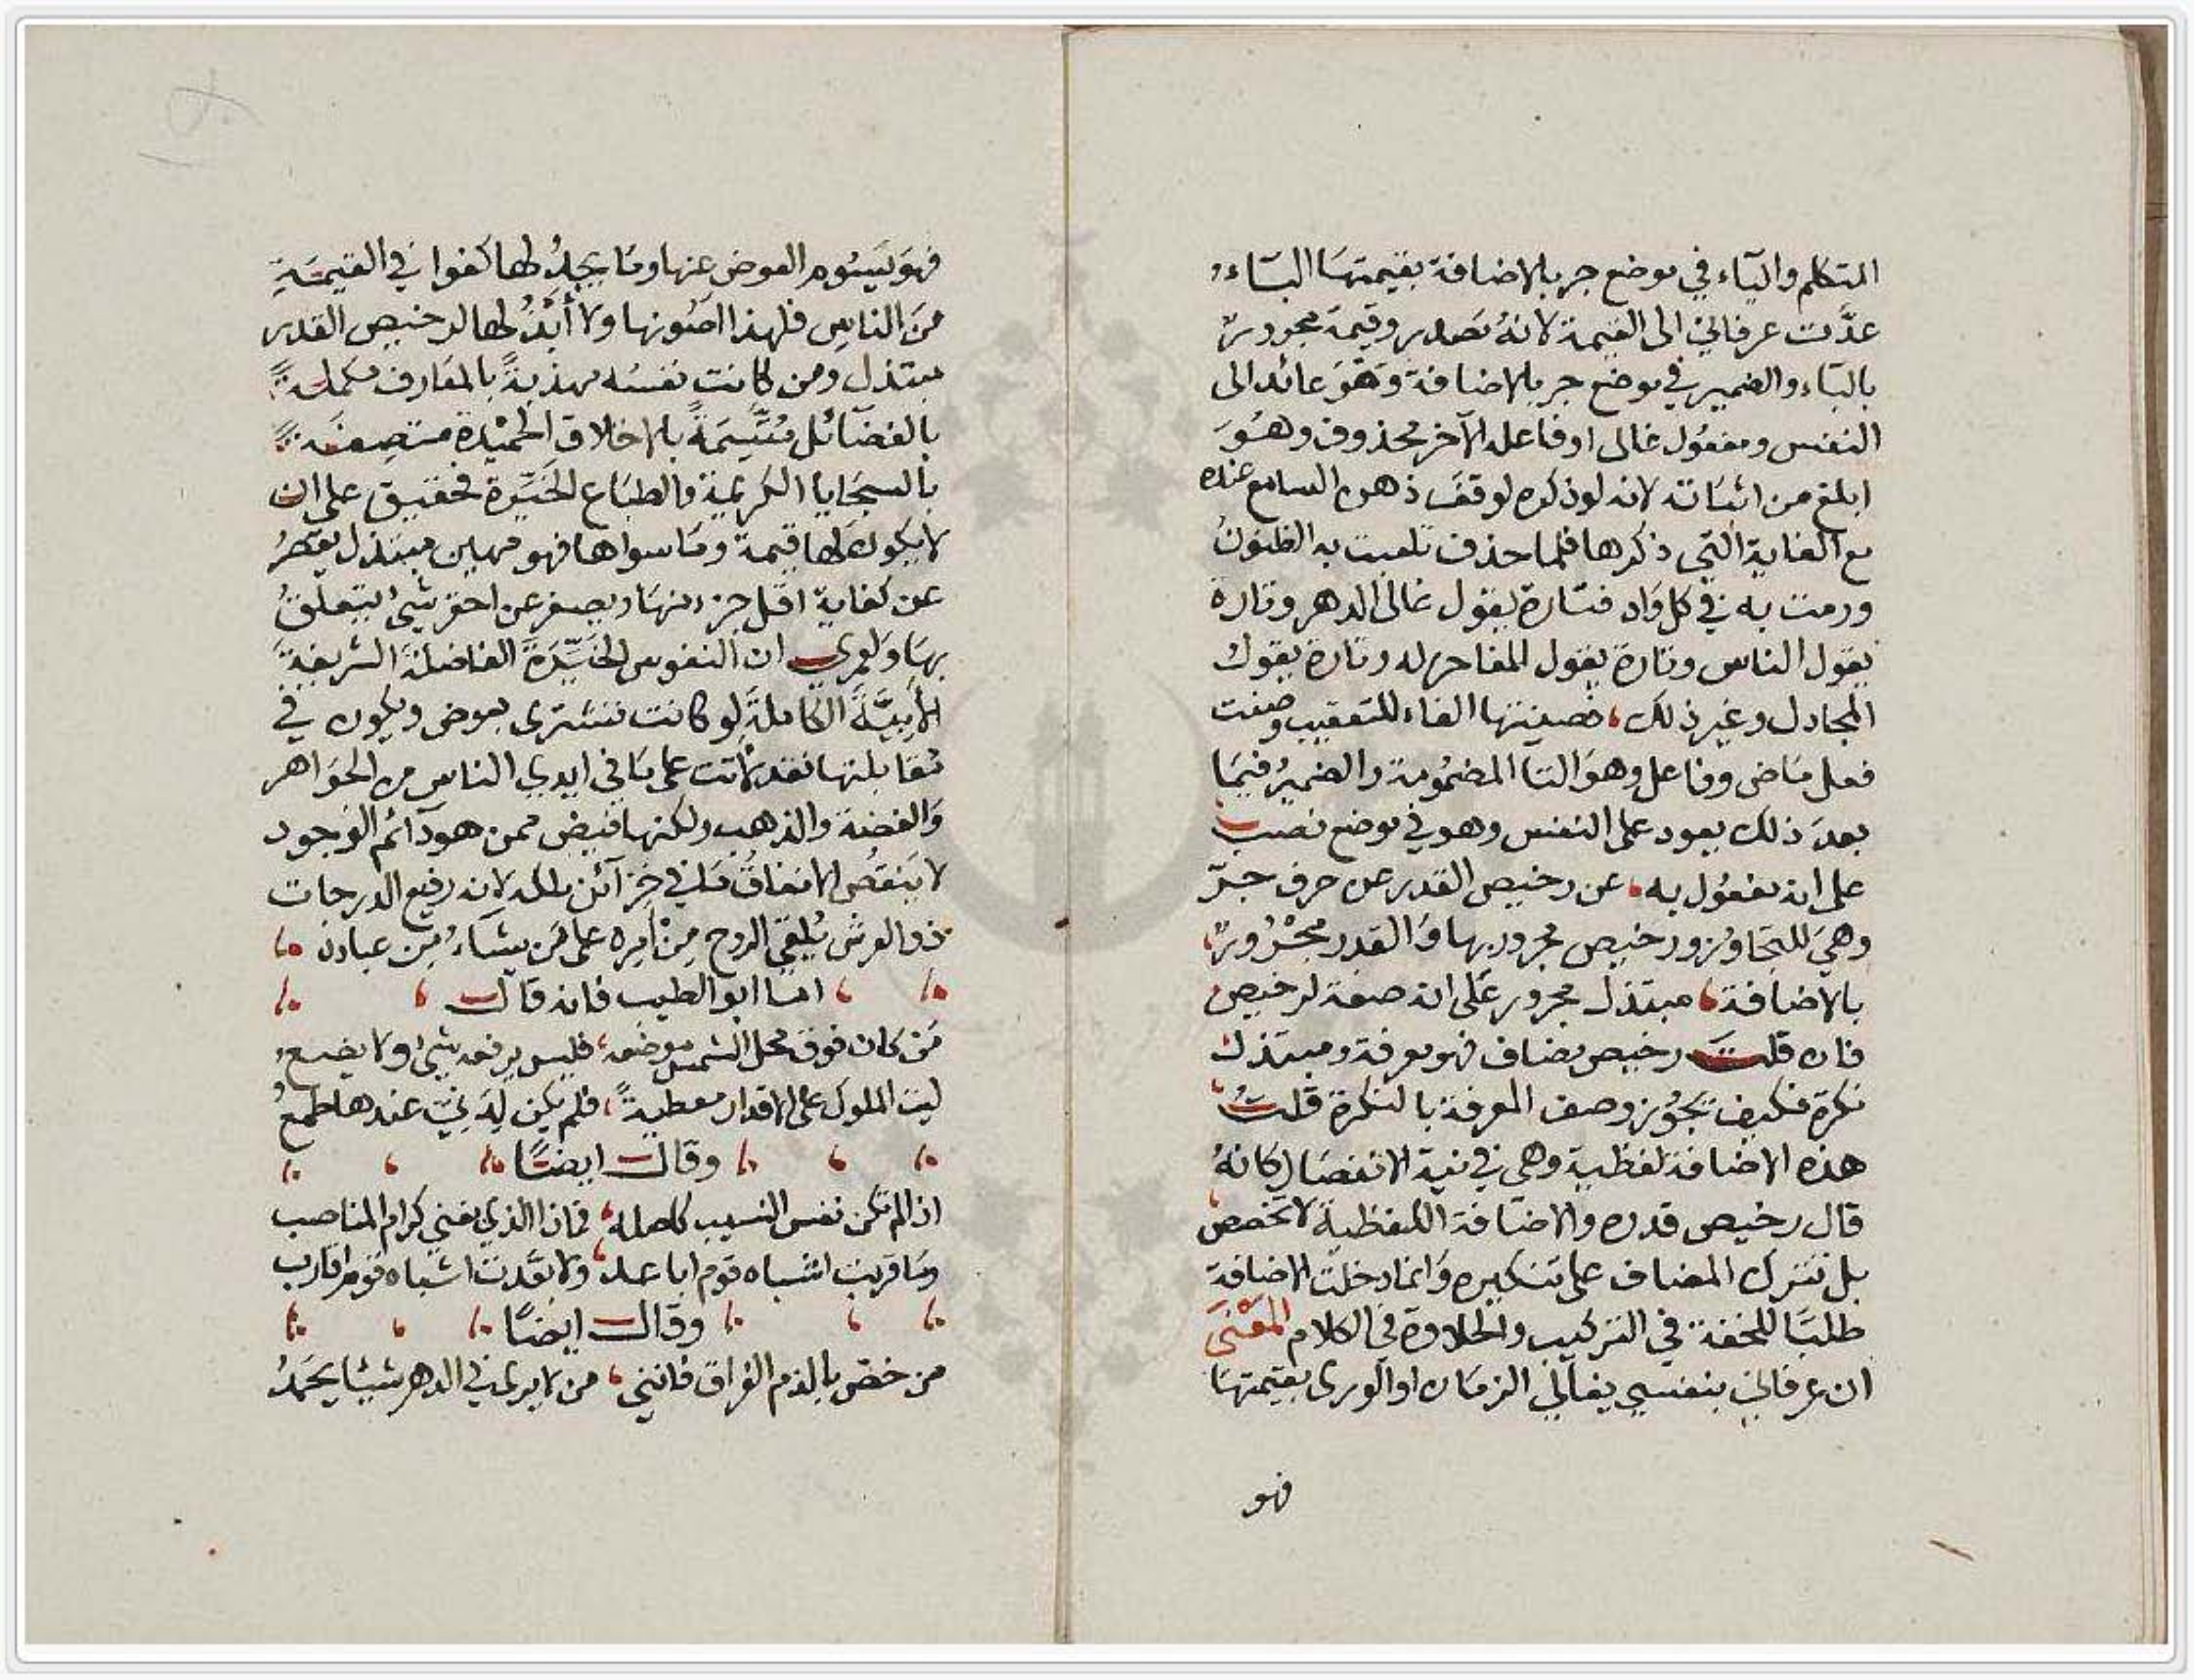 المتكلم والياء في موضع جر بالاضافة بقيمتها الباء
عدَّت عرفاني الى القيمة لانهُ مصدر وقيمة مجرورة
بالباء والضمير في موضع جر بالاضافة وهَوَ عائد الى
النفس ومفعول غالى اوفاعله الآخر محذوف وهُوَ
ابلغ من اثباته لانه لوذكره لوقفَ ذهن السامع عنده
مع الغاية التي ذكرها فلما حذف تلعبت به الظنونُ
ورمت به في كل وَاد فتارة يقول غالى الدهر وتارة
يقول الناس وتارة يقول المفاخر له وتارة يقول
المجادل وغير ذلك، فصينتها الفاء للتعقيب وصنت
فعل مَاض وفاعل وهوَ التا المضمُومة والضميرُ فيمَا
بعدَ ذلك يعود على النفس وهو في موضع نصب
على انه مفعُول به، عن رخيص القدر عن حرف جرّ
وهيَ للتجاوُز ورخيص مجرور بها وَالقدر مجْرُورٌ
بالاضافة، مبتذل مجرور عَلى انه صفة لرخيص
فان قلتَ رخيص مضاف فهو معرفة ومبتذل
نكرة فكيف يجُوز وصف المعرفة بالنكرة قلتُ
هذه الاضافة لفظية وهي في نية الانفصَال كانهُ
قال رخيص قدره والاضافة اللفظية لا تخصص
بل تترك المضاف على تنكيره وَانما دخلت الاضافة
طلبًا للخفة في التركيب والحلاوة في الكلام المَعْنىَ
ان عرفاني بنفسي يغالي الزمَان او الورى بقيمتهَا
فهو
فهوَ يَسُوم العوض عنها ومَا يجدُ لها كفوا في القيمَةِ
منَ الناسِ فلهذا اصُونها ولا أبذُلُها لرخيص القدر
مبتذل ومن كانت نفسُه مهذبةً بالمعَارف مكملةً
بالفضَائل مُتَّسِمَةً بالاخلاق الحميْدة متصِفةً
بالسجَايا الكريمة والطبَاع الخيّرة فحقيق على ان
لا يكون لها قيمة ومَا سواها فهو مهين مبتذل يقصُرُ
عن كفاية اقل جزء منهَا ويصغر عن احقر شيئ يتعلقُ
بهَا وَلعمري ان النفوس الخَيِّرَةَ الفاضلةَ الشريفةَ
الأبيَّةَ الكاملةَ لو كانت تشترى بعوض ويكون في
مُقابلتها نقد لأتت على مَا في ايدي الناس من الجوَاهر
وَالفضة والذهب ولكنها فيض ممن هو دآئم الوجود
لا يَنقصُ الانفاقُ مَا في خزآئن ملكه لانه رفيع الدرجات
ذو العرش يُلقي الروح مِنْ امرِه على مَن يشَاءُ مِن عباده
امَا ابو الطيب فانه قال
مَن كان فوق محل الشمس موضعه، فليس يرفعه شيئ ولا يضعُ
ليت الملوك على الاقدار معطيةً، فلم يكن لدنيّ عندها طمعُ
وقال ايضًا
اذا لم تكن نفس النسيب كاصله، فماذا الذي يغني كرام المناصب
ومَا قربت اشباه قوم اباعد، ولا بعَّدت اشباه قوم اقارب
وقال ايضًا
من خصّ بالذم الفراق فانني، من لا يرى في الدهر شيئا يحمَدُ